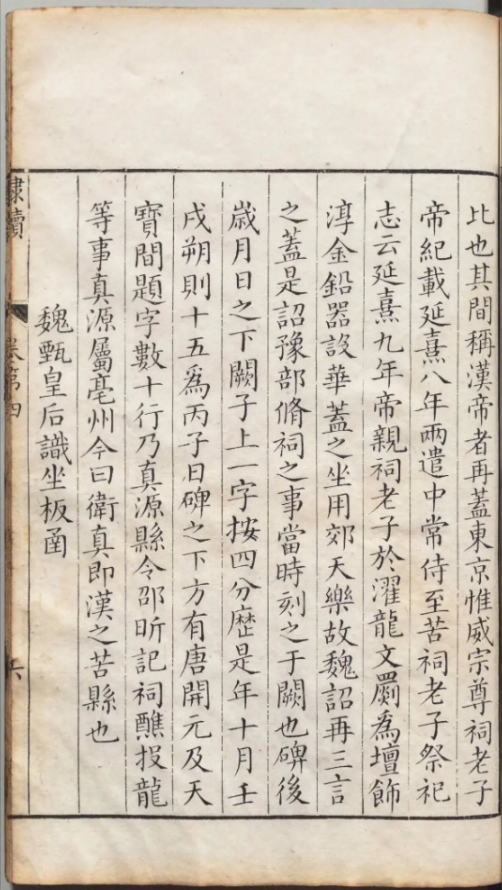 比也其間稱漢帝者再蓋東京惟威宗尊祠老子
帝紀載延熹八年兩遣中常侍至苦祠老子祭祀
志云延熹九年帝親祠老子於濯龍文罽為壇飾
淳金鉛器設華蓋之坐用郊天樂故魏詔再三言
之蓋是詔豫部脩祠之事當時刻之于闕也碑後
歲月日之下闕子上一字按四分歷是年十月壬
戌朔則十五爲丙子日碑之下方有唐開元及天
寶間題字數十行乃真源縣令邵昕記祠醮投龍
等事真源屬亳州今曰衛真即漢之苦縣也
魏甄皇后識坐板函
隸續
卷第四
六